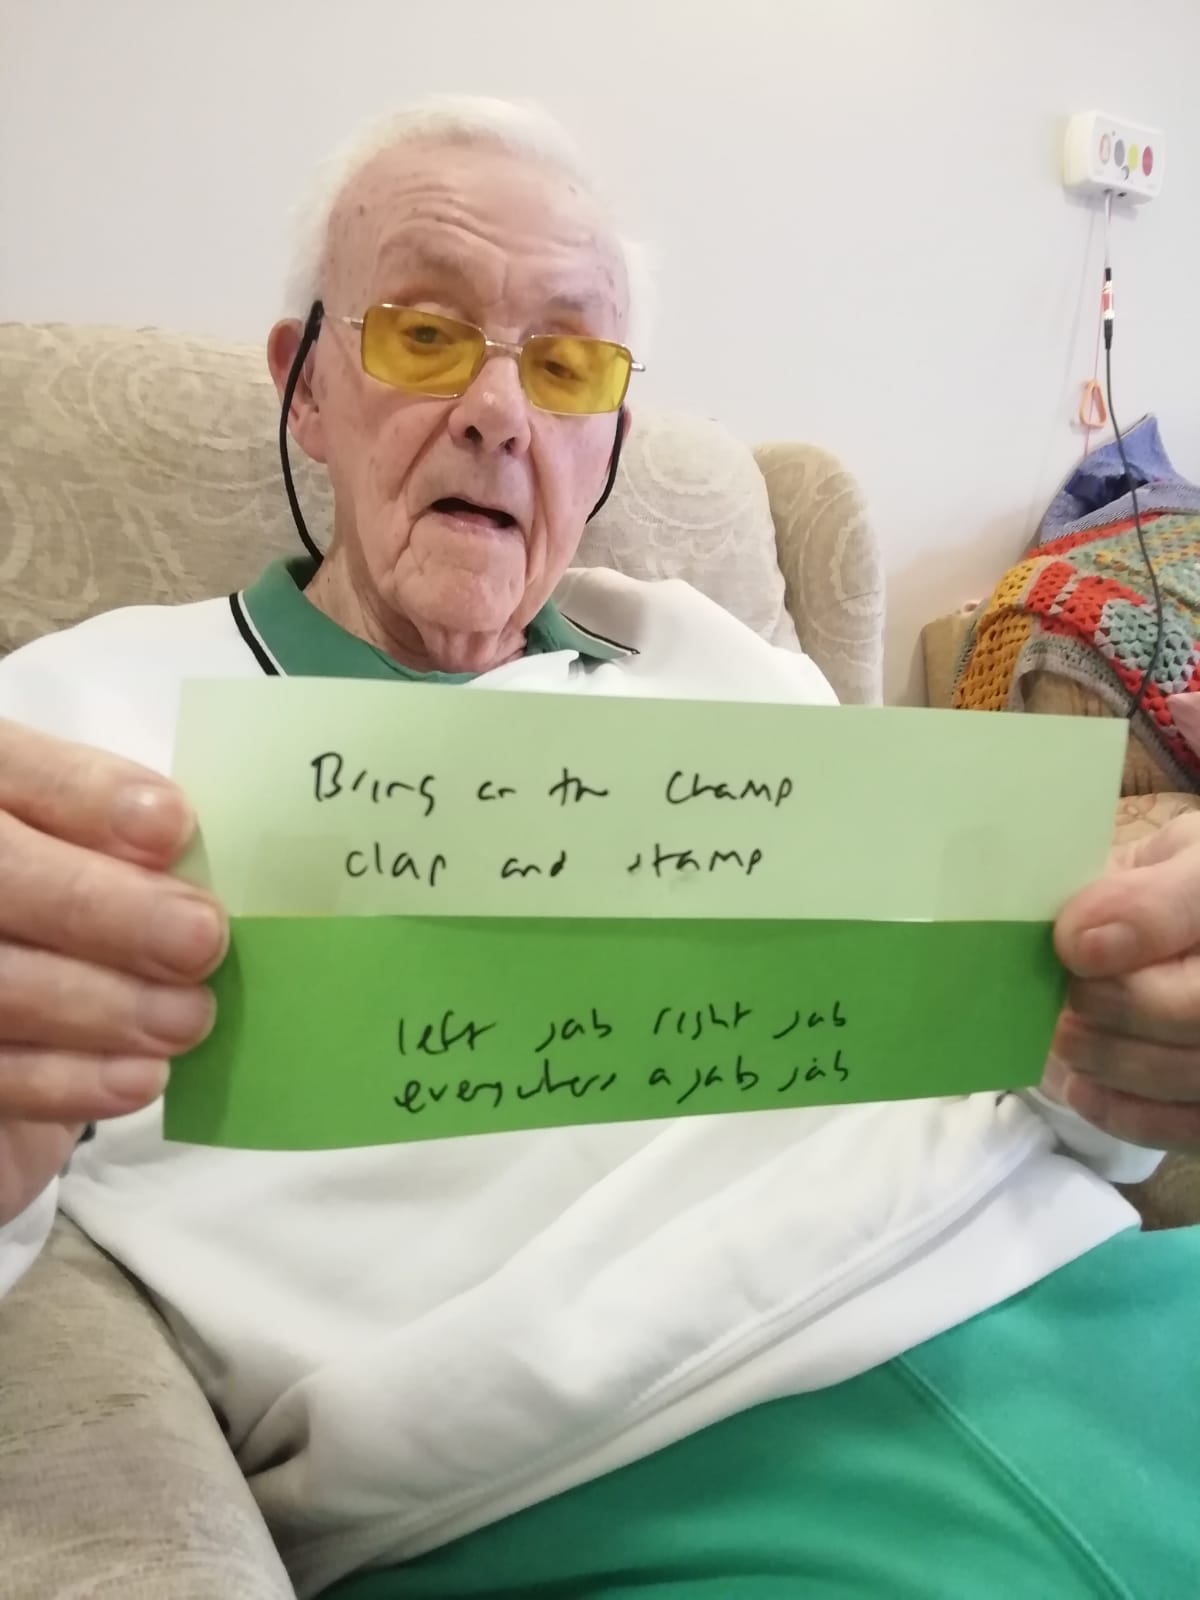 Bring on the Champ
clap and stamp
left jab right jab
everywhere a jab jab